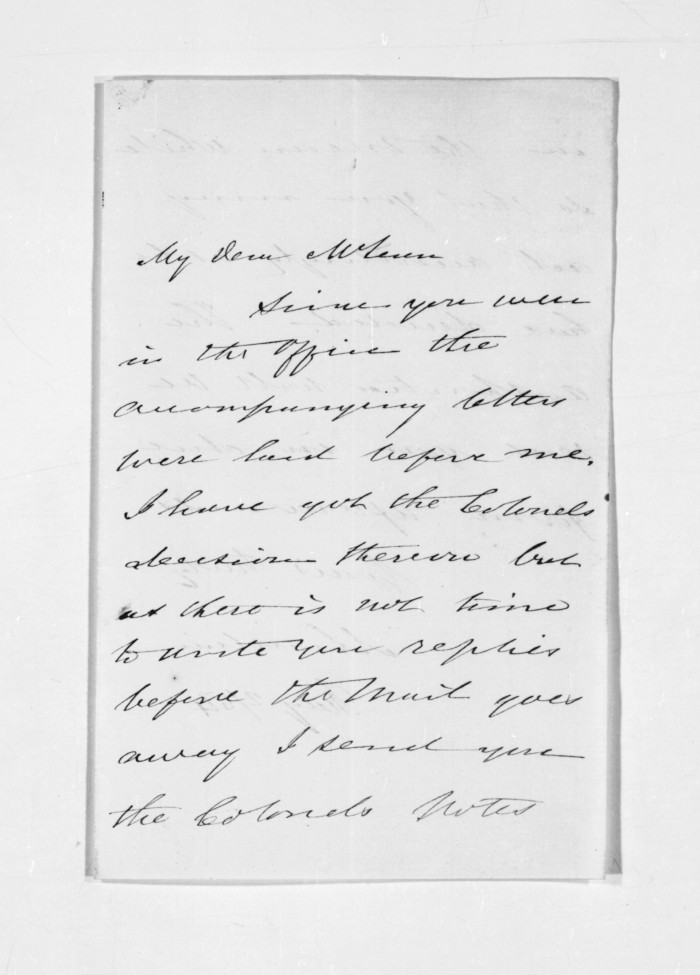 My Dear McLean
Since you were
in the Office the
accompanying letters
were laid before me.
I have got the Colonels
decision thereon but
as there is not time
to write you replies
before the Mail goes
away I send you
the Colonels Notes